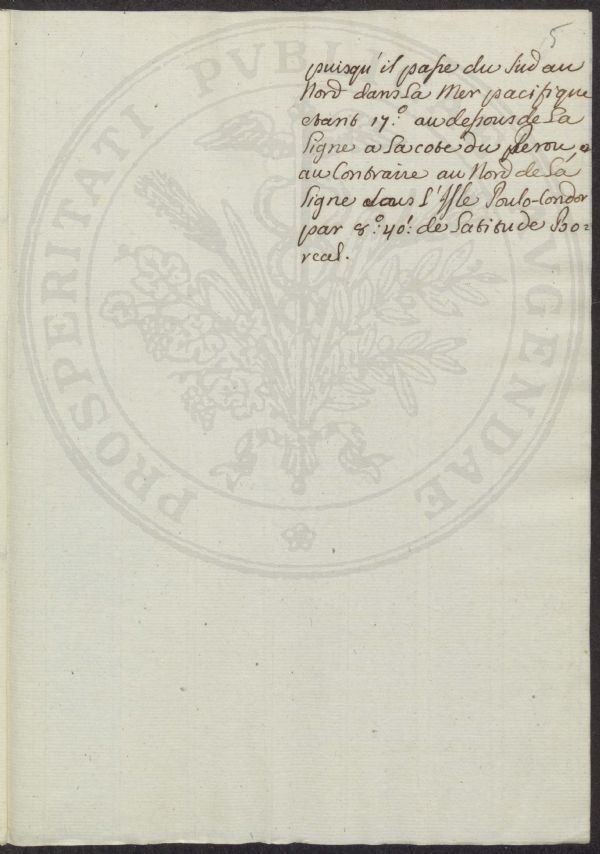 5
puisqu'il passe du Sud au
Nord dans La Mer pacifique
etant 17.° au dessous de La
Ligne a La cote du Perou, &
au Contraire au Nord de La
Ligne dans L'Isle Poulo-Condor
par 8.° 40.' de Latitude Bo-
real.
PROSPERITATI PUBLICAE AUGENDAE